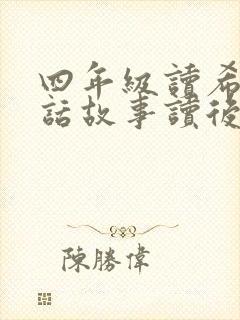 四年級讀希
話故事讀後
陳勝偉